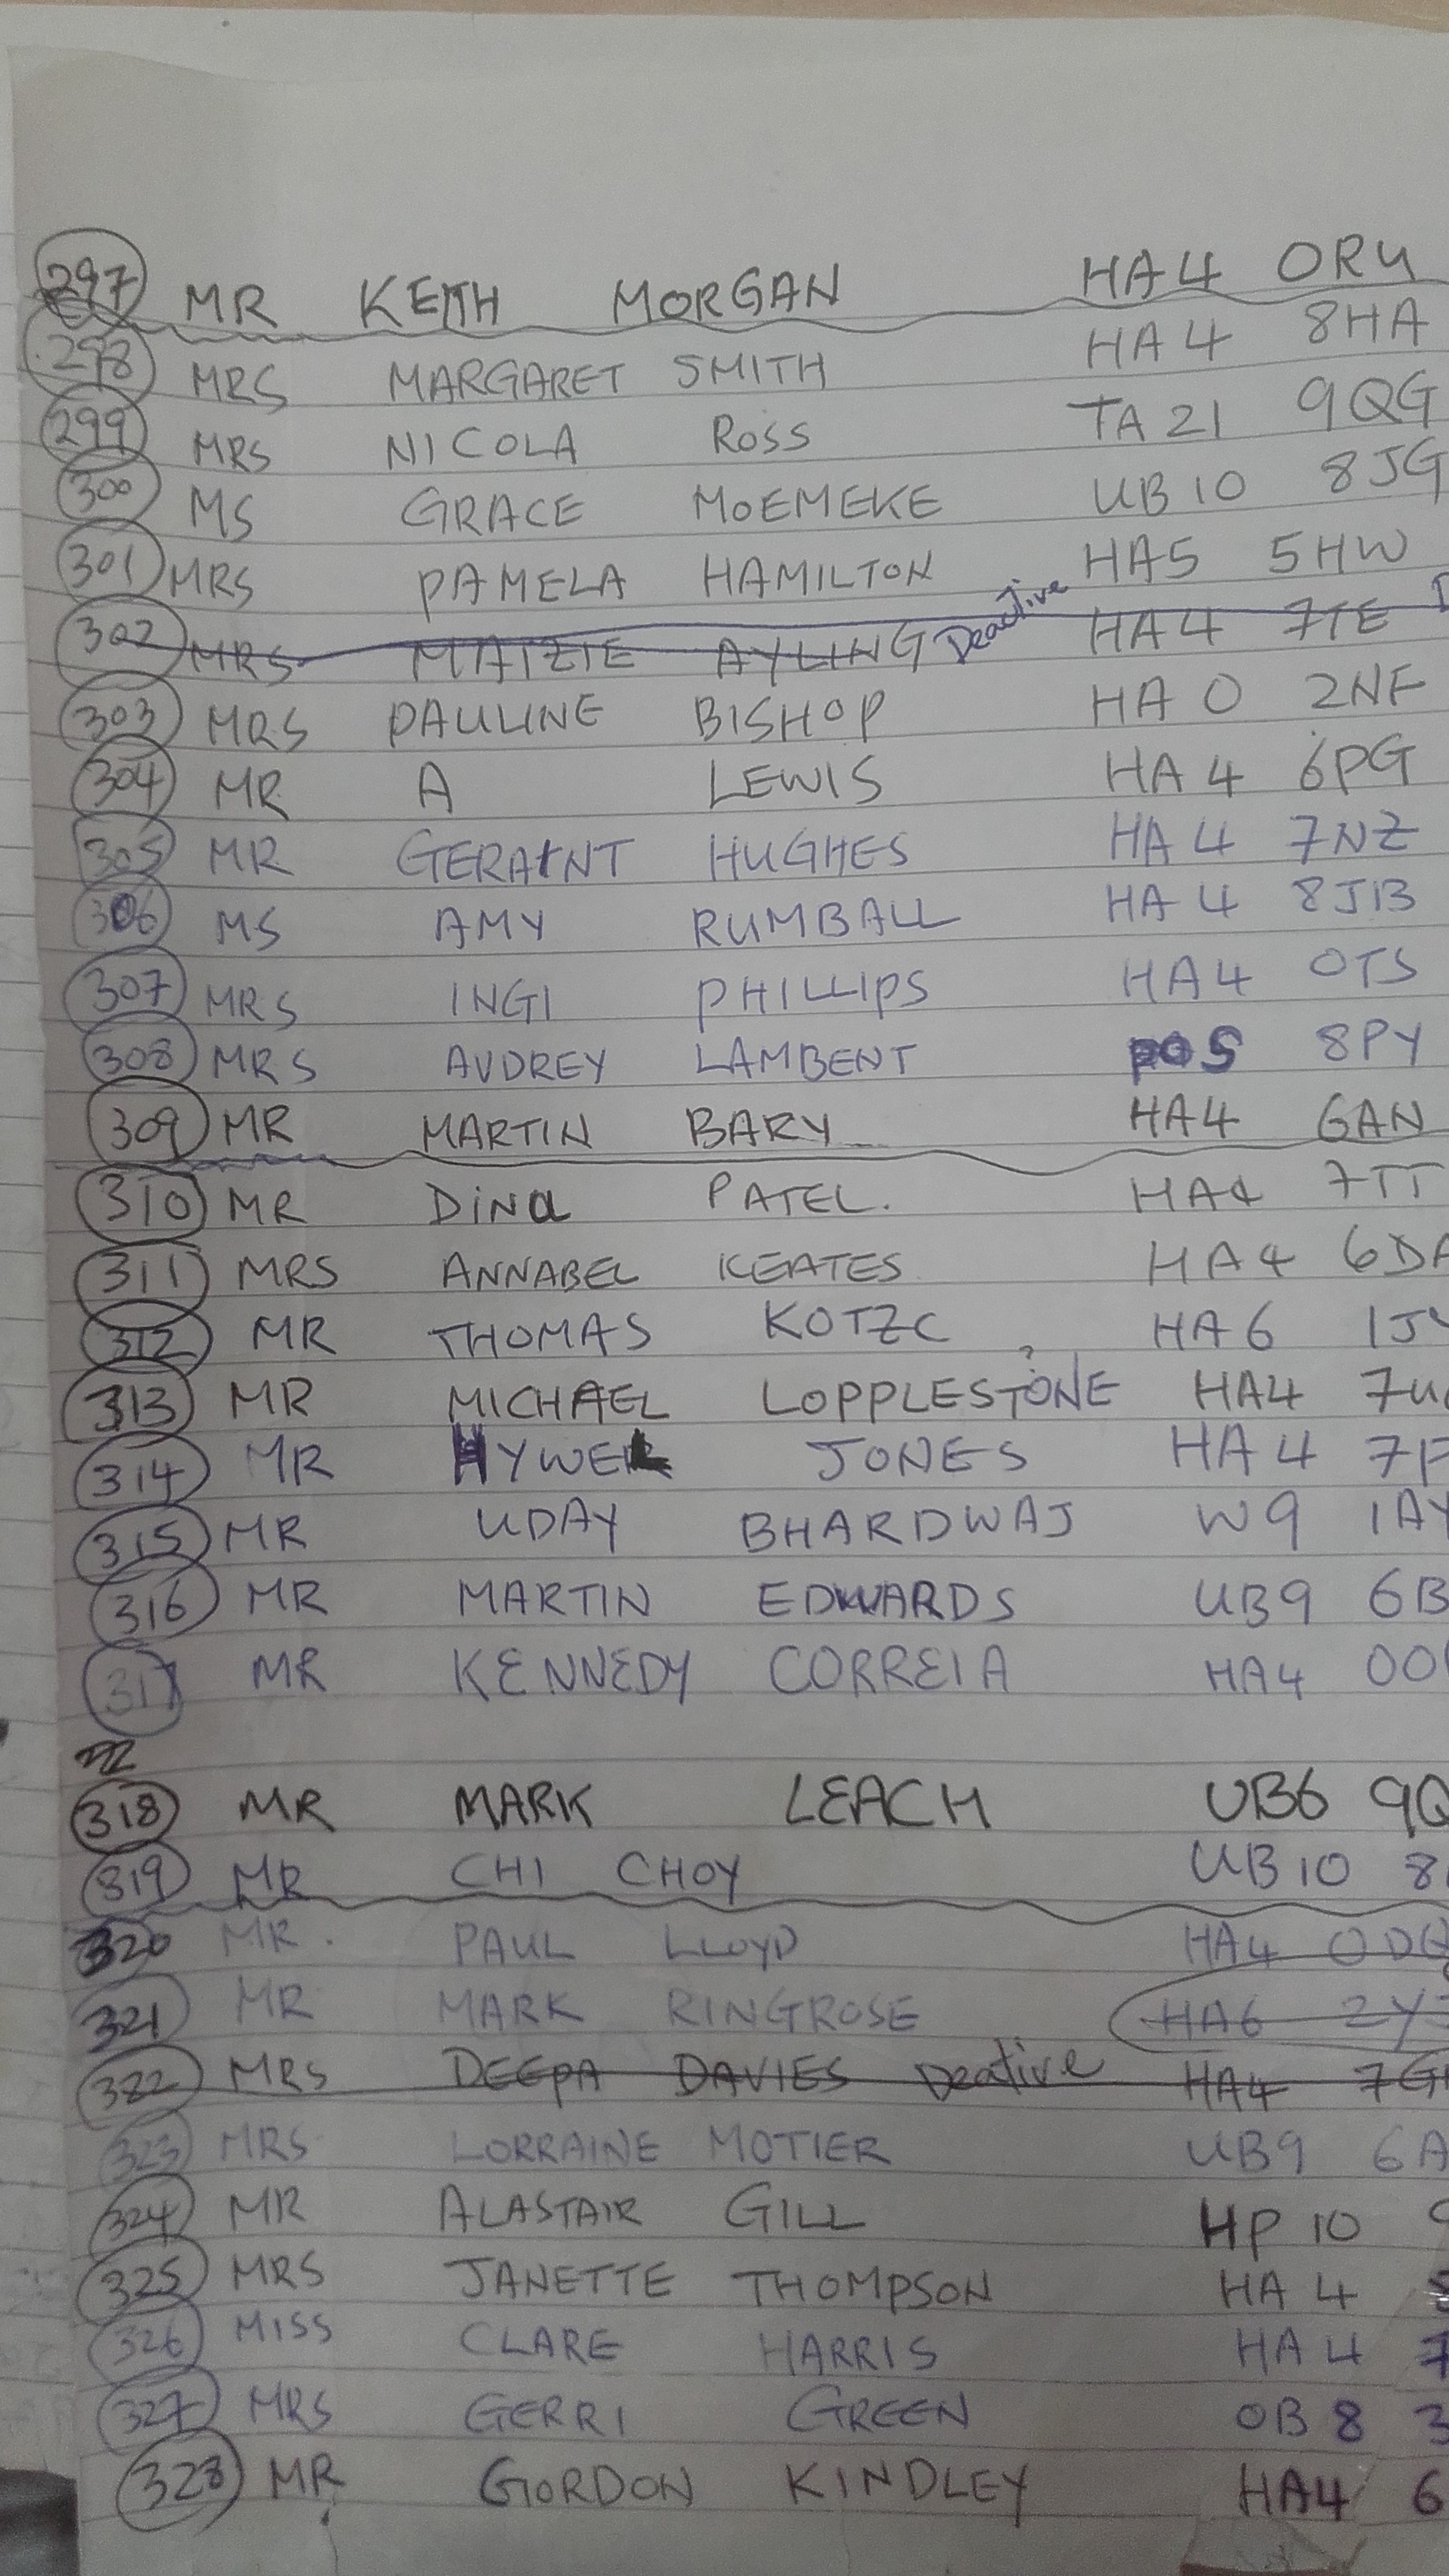 297 MR KEITH MORGAN HA4 0RU
298 MRS MARGARET SMITH HA4 8HA
299 MRS NICOLA ROSS TA21 9QG
300 MS GRACE MOEMEKE UB10 8JG
301 MRS PAMELA HAMILTON HA5 5HW
302 MRS MAIZIE AYLING Deactive HA4 7TE
303 MRS PAULINE BISHOP HA0 2NF
304 MR A LEWIS HA4 6PG
305 MR GERAINT HUGHES HA4 7NZ
306 MS AMY RUMBALL HA4 8JB
307 MRS INGI PHILLIPS HA4 0TS
308 MRS AUDREY LAMBENT PO5 8PY
309 MR MARTIN BARY HA4 GAN
310 MR DINA PATEL. HA4 7TT
311 MRS ANNABEL KEATES HA4 6DA
312 MR THOMAS KOTZC HA6 1J
313 MR MICHAEL LOPPLESTONE ? HA4 7U
314 MR HYWEL JONES HA4 7F
315 MR UDAY BHARDWAJ W9 1AY
316 MR MARTIN EDWARDS UB9 6B
317 MR KENNEDY CORREIA HA4 00
318 MR MARK LEACH UB6 9Q
319 MR CHI CHOY UB10 8
320 MR. PAUL LLOYD HA4 0DQ
321 MR MARK RINGROSE HA6 2Y
322 MRS DEEPA DAVIES Deative HA4 7G
323 MRS LORRAINE MOTIER UB9 6A
324 MR ALASTAIR GILL HP10
325 MRS JANETTE THOMPSON HA4
326 MISS CLARE HARRIS HA4 7
327 MRS GERRI GREEN OB8 3
328 MR GORDON KINDLEY HA4 6